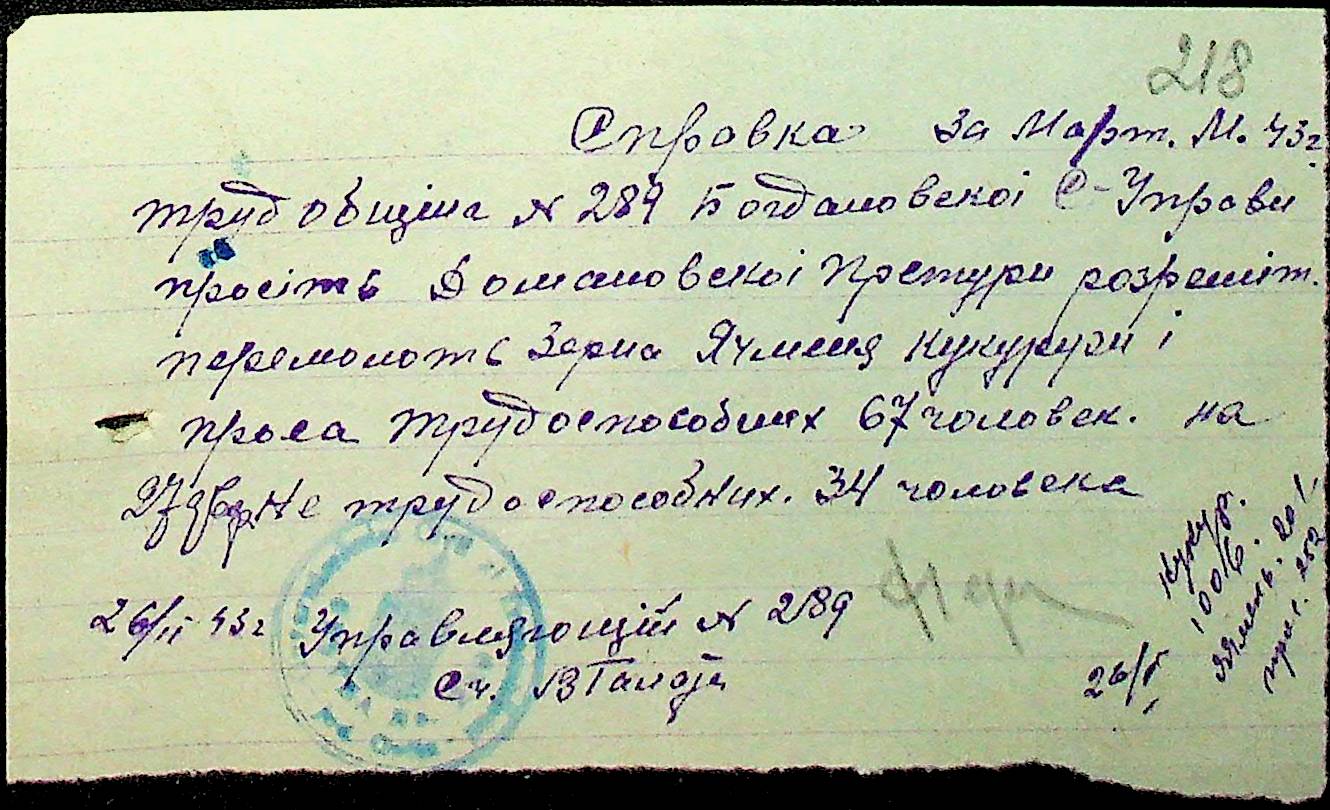 218
Справка за Март. М. 43г.
труд община № 289 Богдановскоі С-Управи
просіть Домановскоі Претури розрешіт.
перемолоть Зерна Ячменя кукурузи і
проса трудоспособних 67 чоловек. на
27 двр. Не трудоспособних. 34 человека
26/II 43г Управляющій № 289
Сч.
Кукур.
100/б.
Ячмень. 20
прос. 252
26/